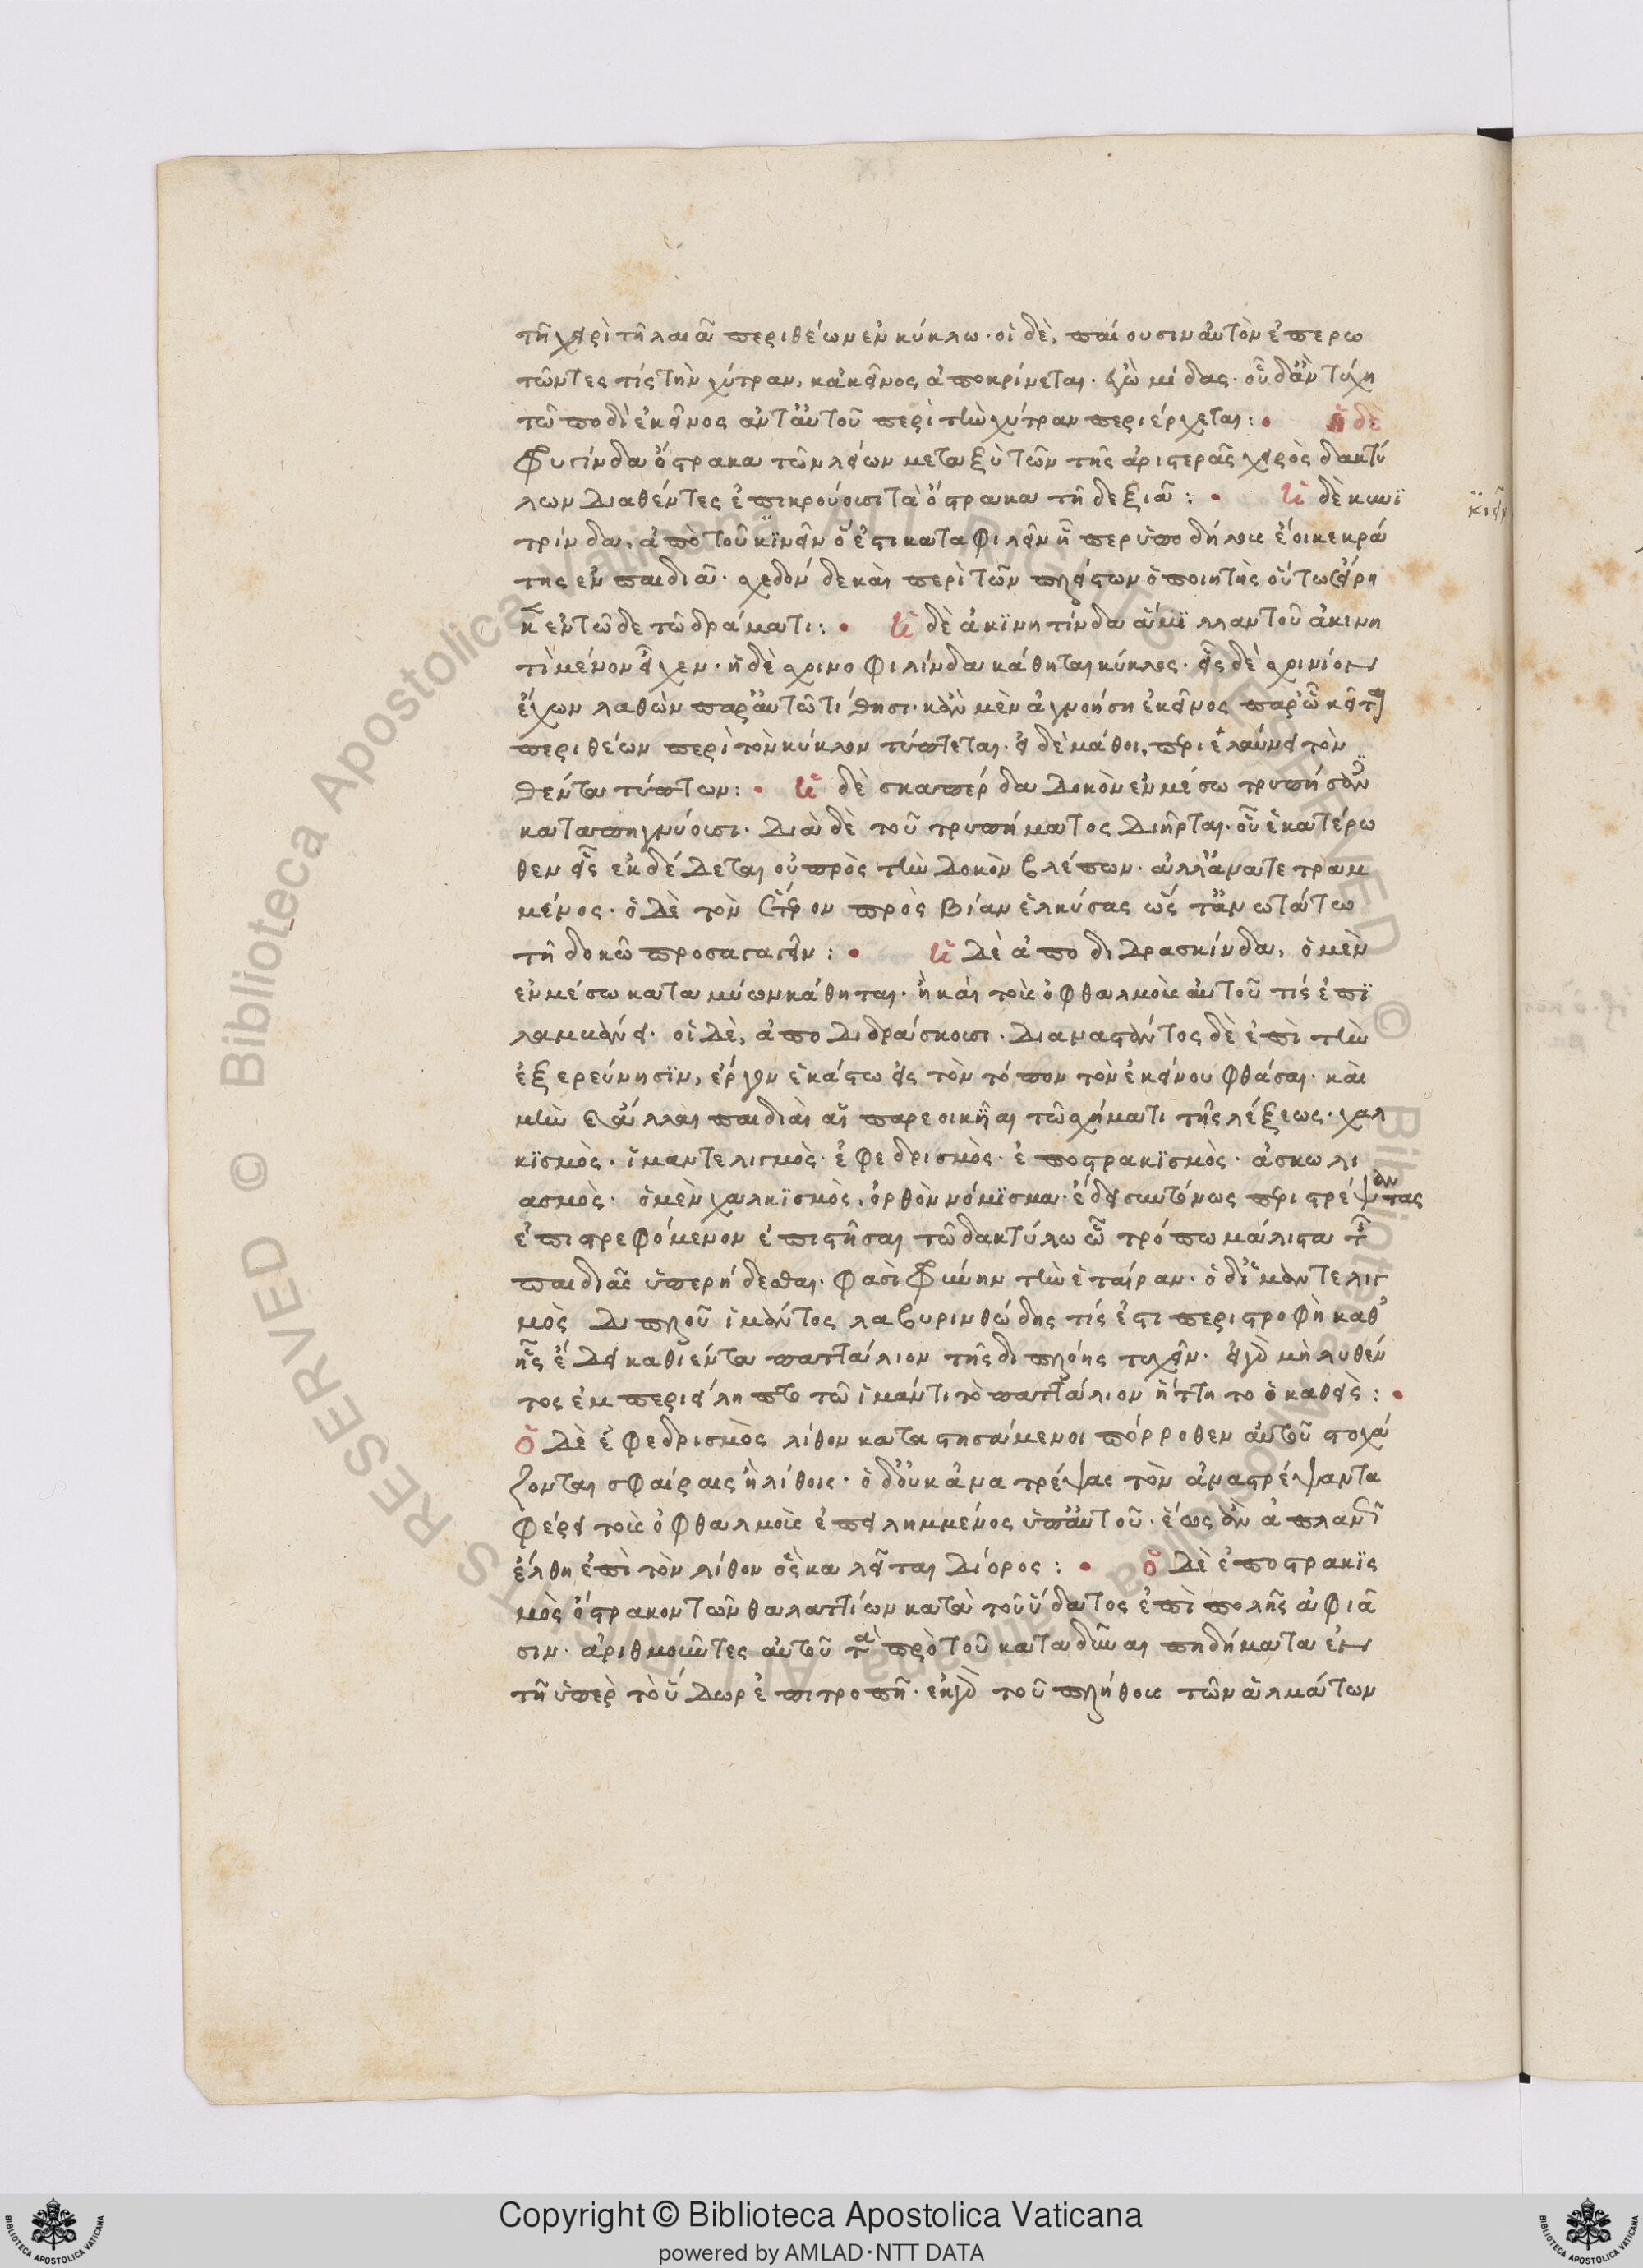 τῆ χειρὶ τῆ λαιᾶ περιθέων ἐν κύκλω· οἱ δὲ, παίουσιν αὐτὸν ἐπερω
τῶντες τίς τὴν χύτραν, κἀκεῖνος ἀποκρίνεται· ἐγὼ μίδας· οὗ δἂν τύχη
τῶ ποδὶ ἐκεῖνος ἀντ' αὐτοῦ περὶ τὴν χύτραν περιέρχεται: • ἡ δὲ
φυγίνδα ὄστρακα τῶν λείων μεταξὺ τῶν τῆς ἀριστερᾶς χειρὸς δακτύ
λων διαθέντες ἐπικρούουσι τὰ ὄστρακα τῆ δεξιᾶ: • ἡ δὲ κυνϊ
τρίνδα, ἀπὸ τοῦ κϊνεῖν ὅ ἐστι καταφιλεῖν ἧπερ ὑποδήλους ἔοικε κρά
της ἐν παιδιᾶ· σχεδόν δὲ καὶ περὶ τῶν πλείστων ὁ ποιητὴς οὕτως εἴρη
κεν ἐν τῶδε τῶ δράματι: • ἡ δὲ ἀκϊνητίνδα ἅμϊλλαν τοῦ ἀκινη
τὶ μένον εἶχεν· ἡ δὲ σχοινοφιλίνδα κάθηται κύκλος· εἷς δὲ σχοινίον
ἔχων λαθὼν παρ' αὐτῶ τίθησι· κἂν μὲν ἀγνοήση ἐκεῖνος παρ' ὧ κεῖται
περιθέων περὶ τὸν κύκλον τύπτεται· εἰ δὲ μάθοι, περιελαύνει τὸν
θέντα τύπτων: • ἡ δὲ σκαπέρδα δοκὸν ἐν μέσω τρυπήσαντες
καταπηγνύουσι· διὰ δὲ τοῦ τρυπήματος διῆρται· οὗ ἑκατέρω
θεν εἷς ἐκδέδεται οὐ πρὸς τὴν δοκὸν βλέπων· ἀλλ' ἀνατετραμ
μένος· ὁ δὲ τὸν ἕτερον πρὸς βίαν ἑλκύσας ὡς τἂν ωτάτω
τῆ δοκῶ προσαγαγεῖν: • ἡ δὲ ἀποδιδρασκίνδα, ὁ μὲν
ἐν μέσω καταμύων κάθηται· ἢ καὶ τοὺς ὀφθαλμοὺς αὐτοῦ τίς ἐπϊ
λαμβάνει· οἱ δὲ, ἀποδιδράσκουσι· διαναστάντος δὲ ἐπὶ τὴν
ἐξερεύνησϊν, ἔργον ἑκάστω εἰς τὸν τόπον τὸν ἐκείνου φθάσαι· καὶ
μὴν καὶ ἄλλαι παιδιαὶ αἳ παρεοικῆαι τῶ σχήματι τῆς λέξεως· χαλ
κϊσμὸς· ἱμαντελιγμὸς· ἐφεδρισμὸς· ἐποστρακϊσμὸς· ἀσκωλι
ασμὸς· ὁ μὲν χαλκϊσμὸς, ὀρθὸν νόμϊσμα· ἔδει συντόνως περιστρέψαντας
ἐπιστρεφόμενον ἐπιστῆσαι τῶ δακτύλω ὧ τρόπω μάλιστα τῆς
παιδιᾶς ὑπερήδεσθαι· φασὶ φρύνην τὴν ἑταίραν· ὁ δ' ἱμαντελιγ
μὸς διπλοῦ ἱμάντος λαβυρινθώδης τίς ἐστι περιστροφὴ καθ'
ἧς ἔδει καθιέντα παττάλιον τῆς διπλόης τυχεῖν· εἰ γὰρ μὴ λυθέν
τος ἐμπεριείληπτο τῶ ἱμάντι τὸ παττάλιον ἥττητο ὁ καθεὶς: •
ὁ δὲ ἐφεδρισμὸς λίθον καταστησάμενοι πόρρωθεν αὐτοῦ στοχά
ζονται σφαίραις ἢ λίθοις· ὁ δ' οὐκ ἀνατρέψας τὸν ἀναστρέψαντα
φέρει τοὺς ὀφθαλμοὺς ἐπειλημμένος ὑπ' αὐτοῦ· ἕως ἂν ἀπλανῶς
ἔλθη ἐπὶ τὸν λίθον ὃς καλεῖται δίορος: • ὁ δὲ ἐποστρακϊς
μὸς ὄστρακον τῶν θαλαττίων κατὰ τοῦ ὕδατος ἐπὶ πολῆς ἀφιᾶ
σιν· ἀριθμοῦντες αὐτοῦ τὰ πρὸ τοῦ καταδῦναι πηδήματα ἐν
τῆ ὑπὲρ τὸ ὕδωρ ἐπιτροπῆ· ἐκ γὰρ τοῦ πλήθους τῶν ἁλμάτων